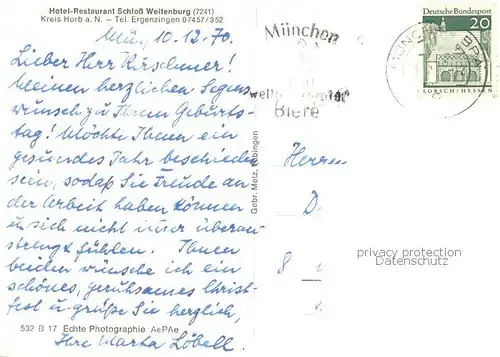 Hotel-Restaurant Schloß Weitenburg (7241)
Kreis Horb a. N. – Tel. Ergenzingen 07457/352
Mü., 10.12.70.
Lieber Herr Kirschner!
Meinen herzlichen Segens-
wunsch zu Ihrem Geburts-
tag! Möchte Ihnen ein
gesundes Jahr beschieden
sein, sodaß Sie Freude an
der Arbeit haben können
u. sich nicht immer überan-
strengt fühlen. Ihnen
beiden wünsche ich ein
schönes, geruhsames Christ-
fest u. grüße Sie herzlich,
Ihre Marta Löbell.
532 B 17 Echte Photographie AePAe
Gebr. Metz, Tübingen
München
Biere
Deutsche Bundespost
20
LORSCH/HESSEN
MÜNCHEN
Herrn
D.
8
privacy protection
Datenschutz